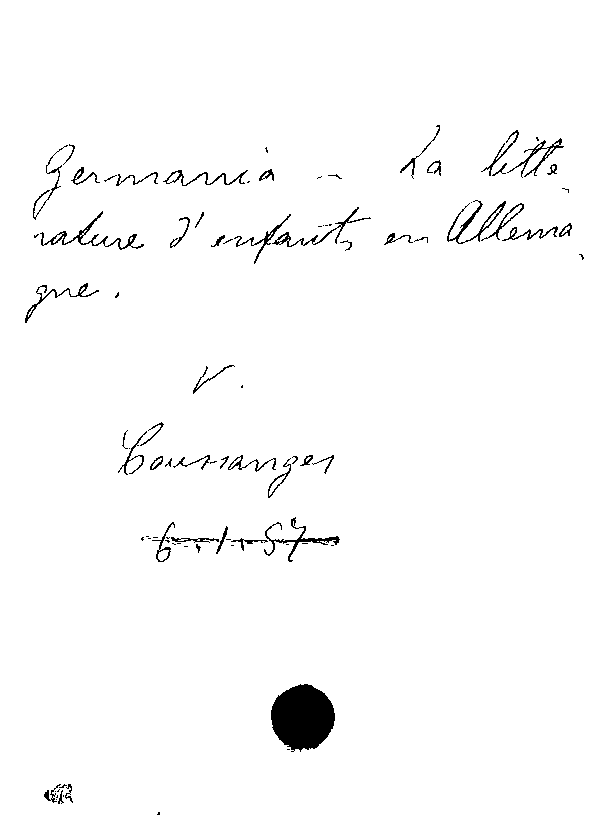 Germania - La litté-
rature d'enfants en Allema-
gne.
V.
Coussanges
6.1.57